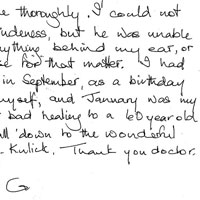 thoroughly. I could not
but he was unable
behind my ear, or
for that matter. I had
in September, as a birthday
myself, and January was my
bad healing to a 60 year old
down to the wonderful
Kulick. Thank you doctor.
G